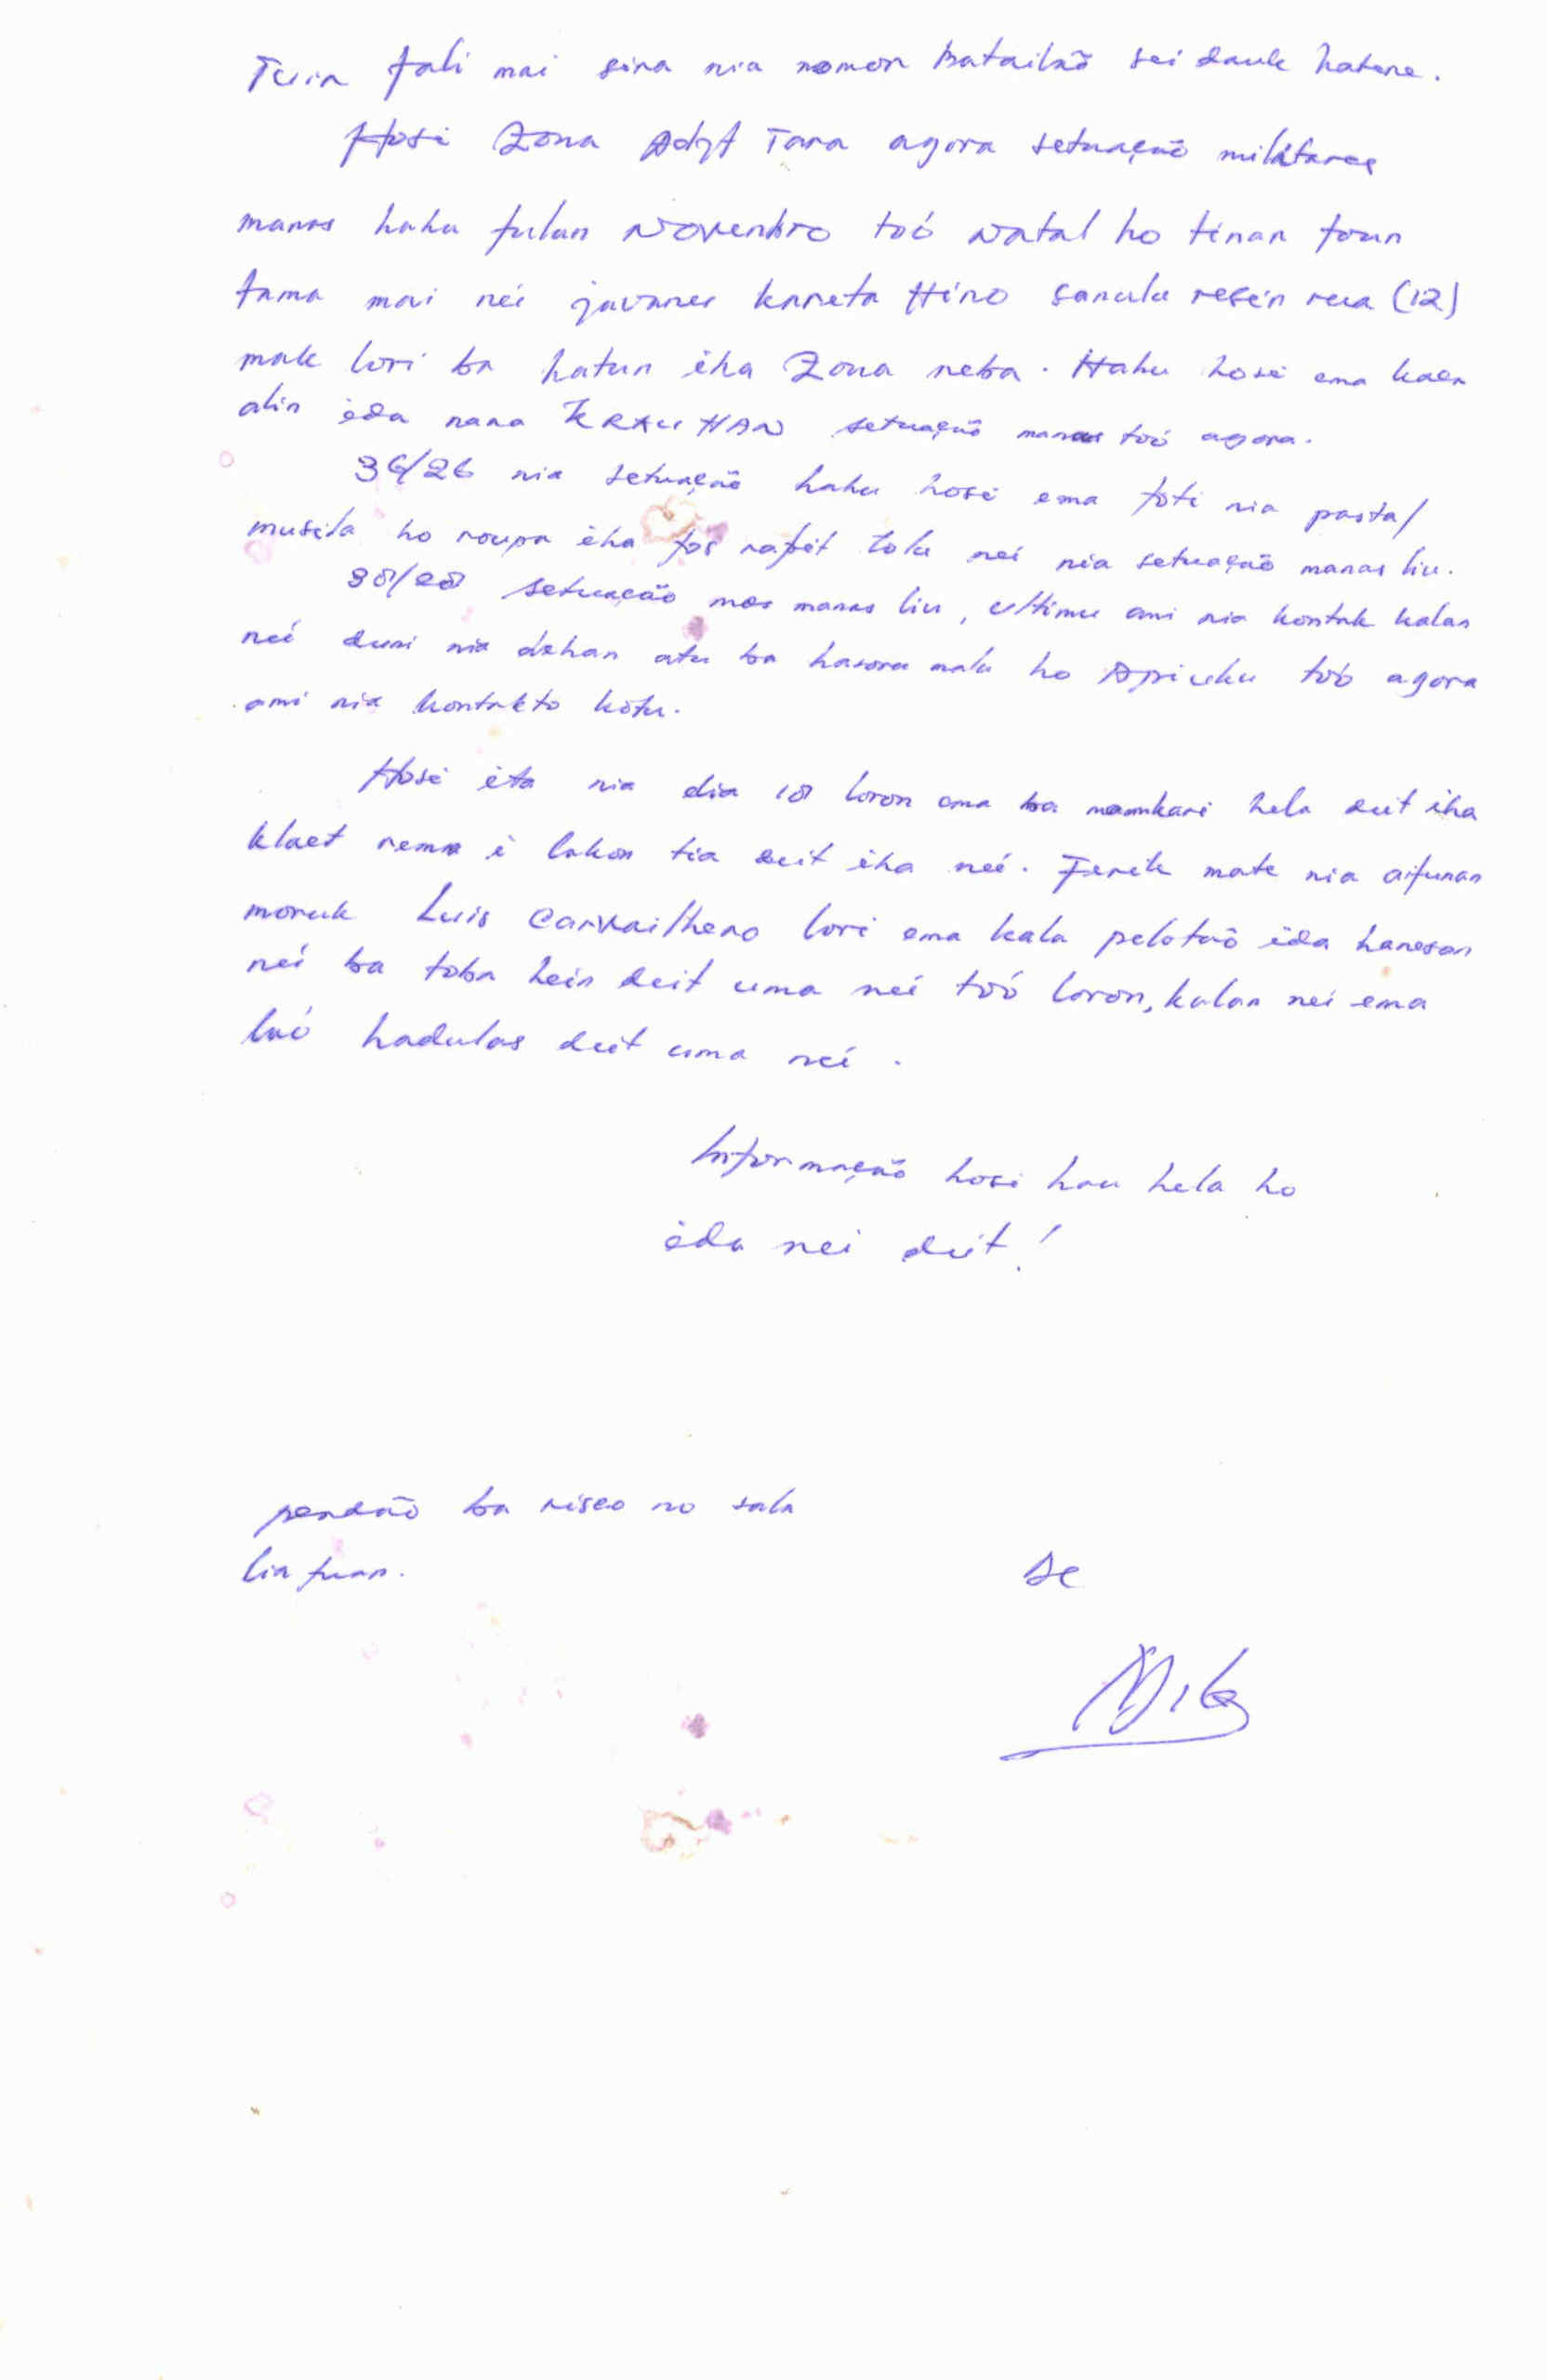 Tuir fali mai sira nia nomor batailaõ sei dauk hatene.
Hosi Zona Adjt Tara agora setuaçaõ militares
manas hahu fulan Novenbro toó Natal ho tinan foun
tama mai neí javanes kareta Hino sanulu resin rua (12)
mak lori ba hatun iha Zona neba. Hahu hosi ema kaer
alin ida naran setuaçaõ manas toó agora.
36/26 nia setuaçaõ hahu hosi ema foti nia pasta/
musila ho roupa iha tos rabit tolu neí nia setuaçaõ manas liu.
38/28 setuaçaõ mos manas liu, ultimu ami nia kontak kalan
neí duni nia dehan atu ba hasoru malu ho Apiuku toó agora
ami nia kontakto kotu.
Hosi ita nia dia 18 loron ema ba namkari hela deit iha
klaet remar i lakon tia deit iha neí. Ferik mate nia aifunan
moruk Luis Carvailheno lori ema kala pelotaõ ida hanesan
neí ba toba hein deit uma neí toó loron, kalan neí ema
laó hadulas deit uma neí.
Informaçaõ hosi hau hela ho
ida nei deit!
perdaõ ba risco no sala
lia fuan.
De